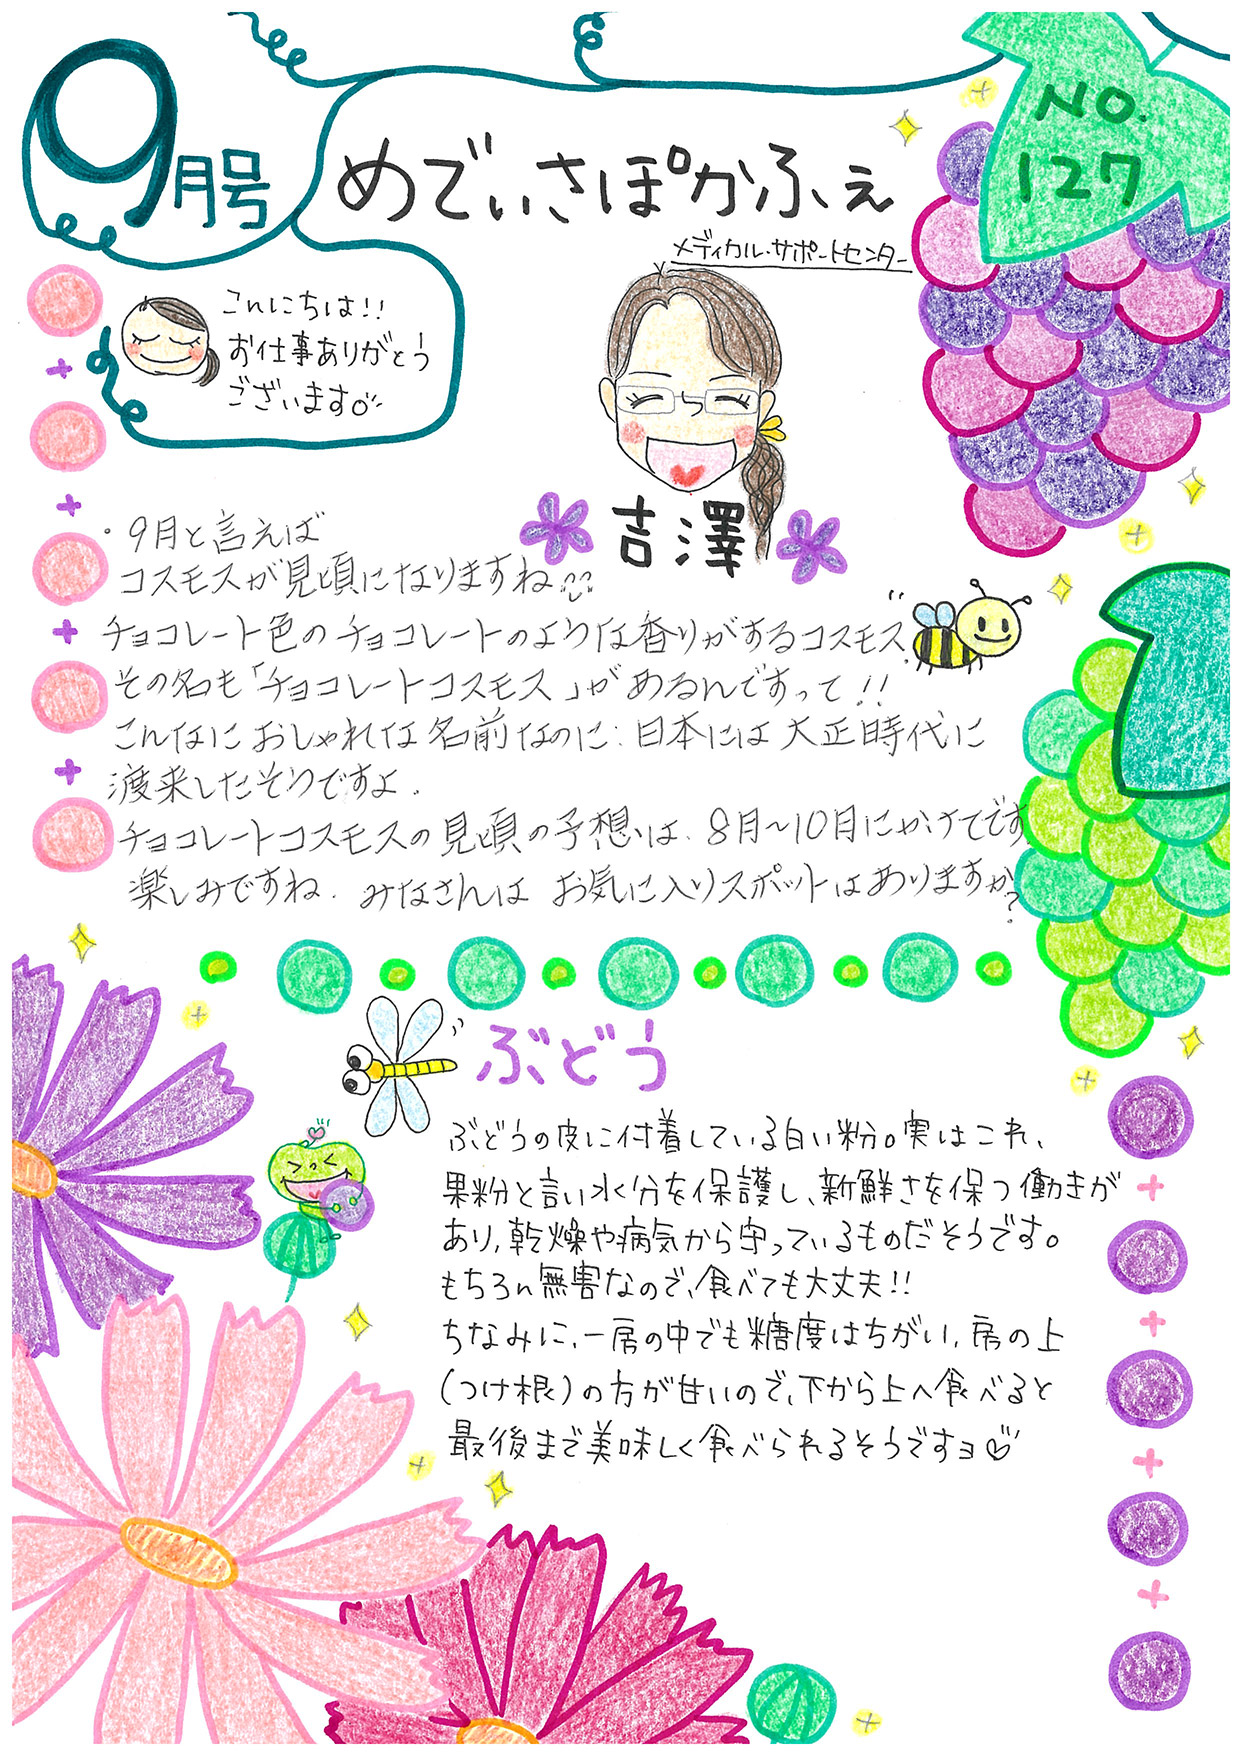 9月号
めでぃさぽかふぇ
NO.
127
メディカル・サポートセンター
こんにちは!!
お仕事ありがとう
ございます
吉澤
・9月と言えば
コスモスが見頃になりますね
チョコレート色のチョコレートのような香りがするコスモス
その名も「チョコレートコスモス」があるんですって!!
こんなにおしゃれな名前なのに、日本には大正時代に
渡来したそうですよ.
チョコレートコスモスの見頃の予想は、8月〜10月にかけてです.
楽しみですね. みなさんは お気に入りスポットはありますか?
ぶどう
ぶどうの皮に付着している白い粉。実はこれ、
果粉と言い水分を保護し、新鮮さを保つ働きが
あり、乾燥や病気から守っているものだそうです。
もちろん無害なので、食べても大丈夫!!
ちなみに、一房の中でも糖度はちがい、房の上
(つけ根)の方が甘いので、下から上へ食べると
最後まで美味しく食べられるそうですョ♡